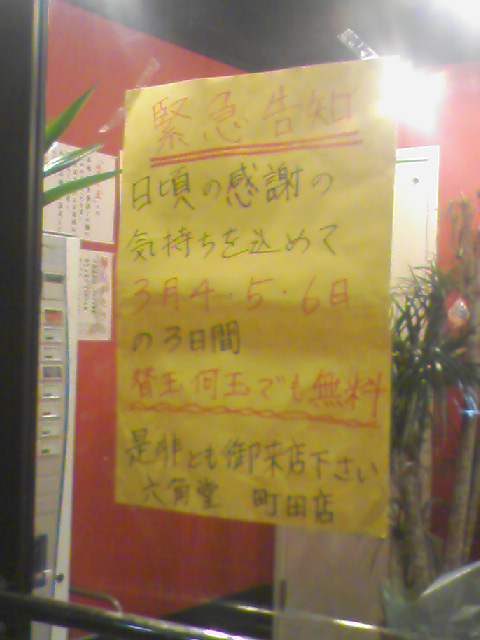 緊急告知
日頃の感謝の
気持ちを込めて
3月4・5・6日
の3日間
替玉何玉でも無料
是非とも御来店下さい
六角堂 町田店